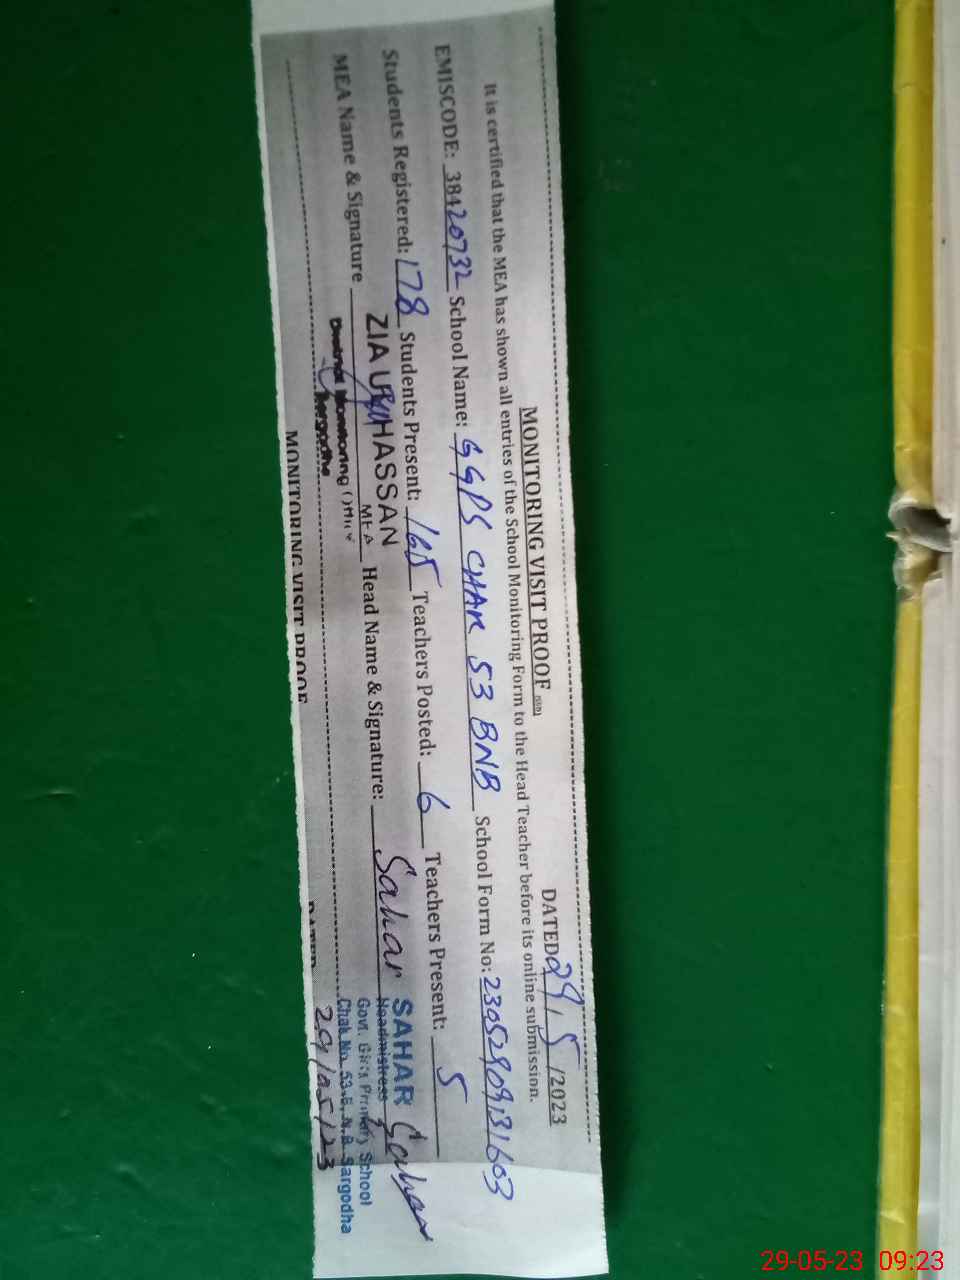 MONITORING VISIT PROOF
DATED 29/5/2023
It is certified that the MEA has shown all entries of the School Monitoring Form to the Head Teacher before its online submission.
EMISCODE: 38420732 School Name: GGPS CHAK 53 BNB School Form No: 23052909131603
Students Registered: 178 Students Present: 165 Teachers Posted: 6 Teachers Present: 5
MEA Name & Signature ZIA UL HASSAN Head Name & Signature: Sahar SAHAR Sahar
MEA Headmistress
District Monitoring Office Govt. Girls Primary School
Sargodha Chak No. 53.E, N.B. Sargodha
29/05/23
MONITORING VISIT PROOF
DATED
29-05-23 09:23